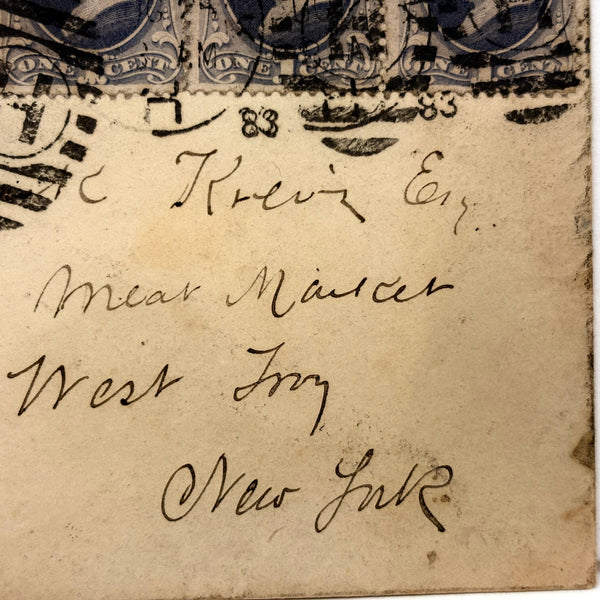 ONE CENT ONE 1 CENT ONE 1 CENT
83 83
Esq.
Meat Market
West Troy
New York